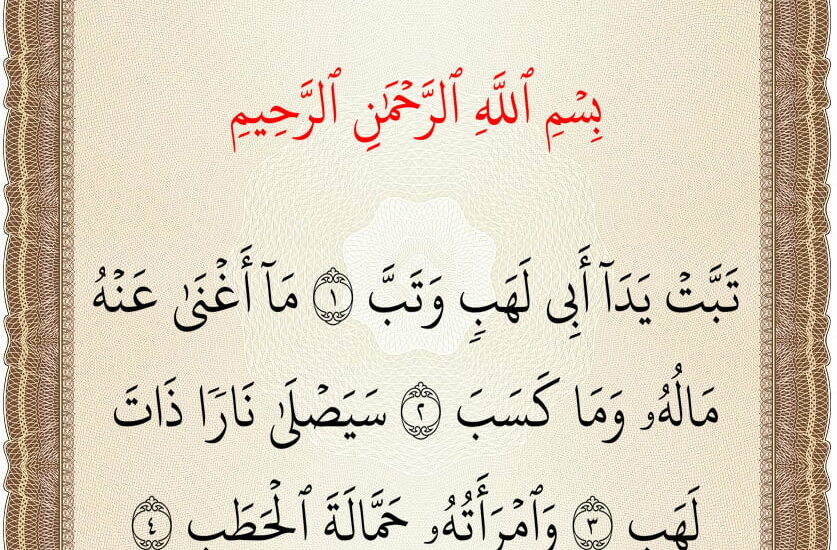 بِسْمِ ٱللَّهِ ٱلرَّحْمَٰنِ ٱلرَّحِيمِ
تَبَّتْ يَدَآ أَبِى لَهَبٍ وَتَبَّ ١ مَآ أَغْنَىٰ عَنْهُ
مَالُهُۥ وَمَا كَسَبَ ٢ سَيَصْلَىٰ نَارًا ذَاتَ
لَهَبٍ ٣ وَٱمْرَأَتُهُۥ حَمَّالَةَ ٱلْحَطَبِ ٤